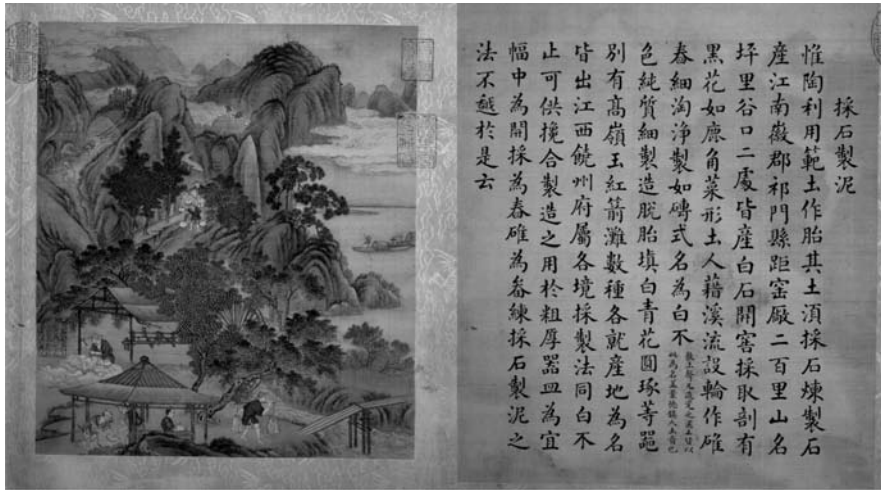 採石製泥
惟陶利用範土作胎其土湏採石煉製石
產江南徽郡祁門縣距窰厰二百里山名
坪里谷口二處皆產白石開窖採取剖有
黑花如鹿角菜形土人藉溪流設輪作碓
舂細淘淨製如磚式名為白不
色純質細製造脫胎填白青花圓琢等器
別有高嶺玉紅箭灘數種各就產地為名
皆出江西饒州府屬各境採製法同白不
止可供攙合製造之用於粗厚器皿為宜
幅中為開採為舂碓為畚練採石製泥之
法不越於是云